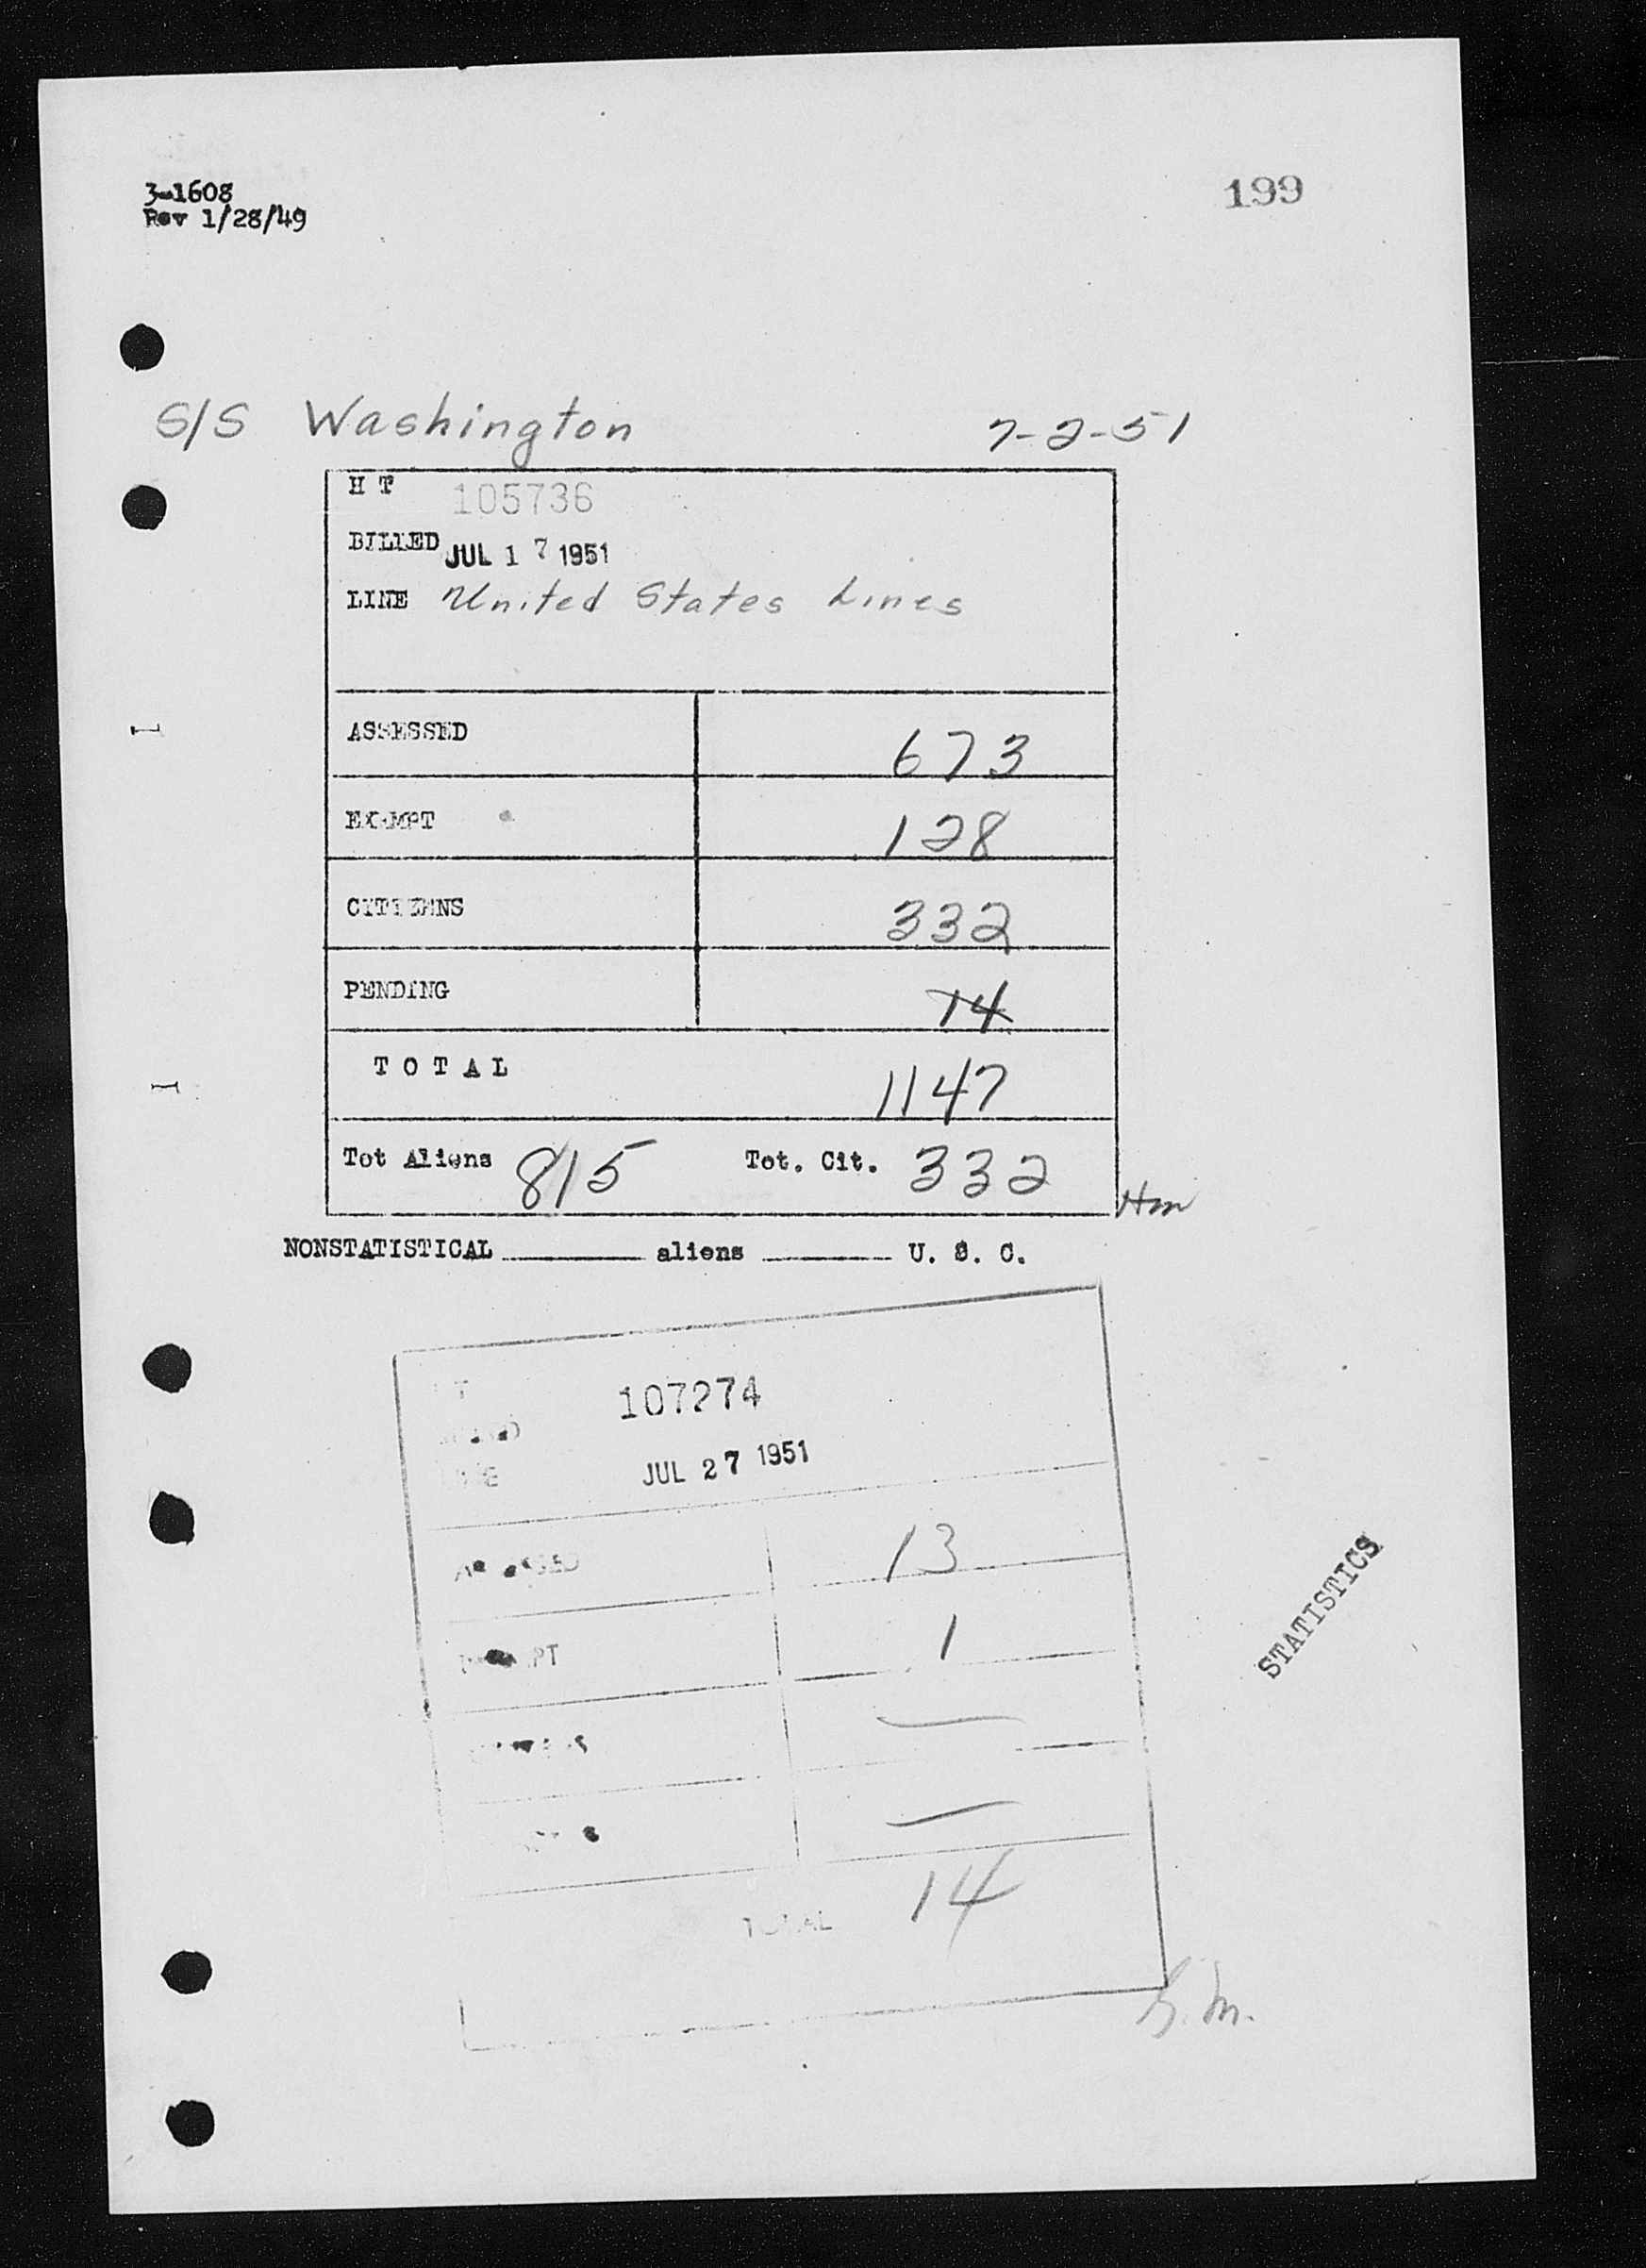 3-1608
Rev 1/28/49
199
S/S Washington 7-2-51
H T 105736
BILLED JUL 17 1951
LINE United States Lines
ASSESSED 673
EXEMPT 128
CITIZENS 332
PENDING 14
TOTAL 1147
Tot Aliens 815 Tot. Cit. 332
NONSTATISTICAL aliens U. S. C.
T 107274
JUL 27 1951
13
1
—
—
TOTAL 14
STATISTICS